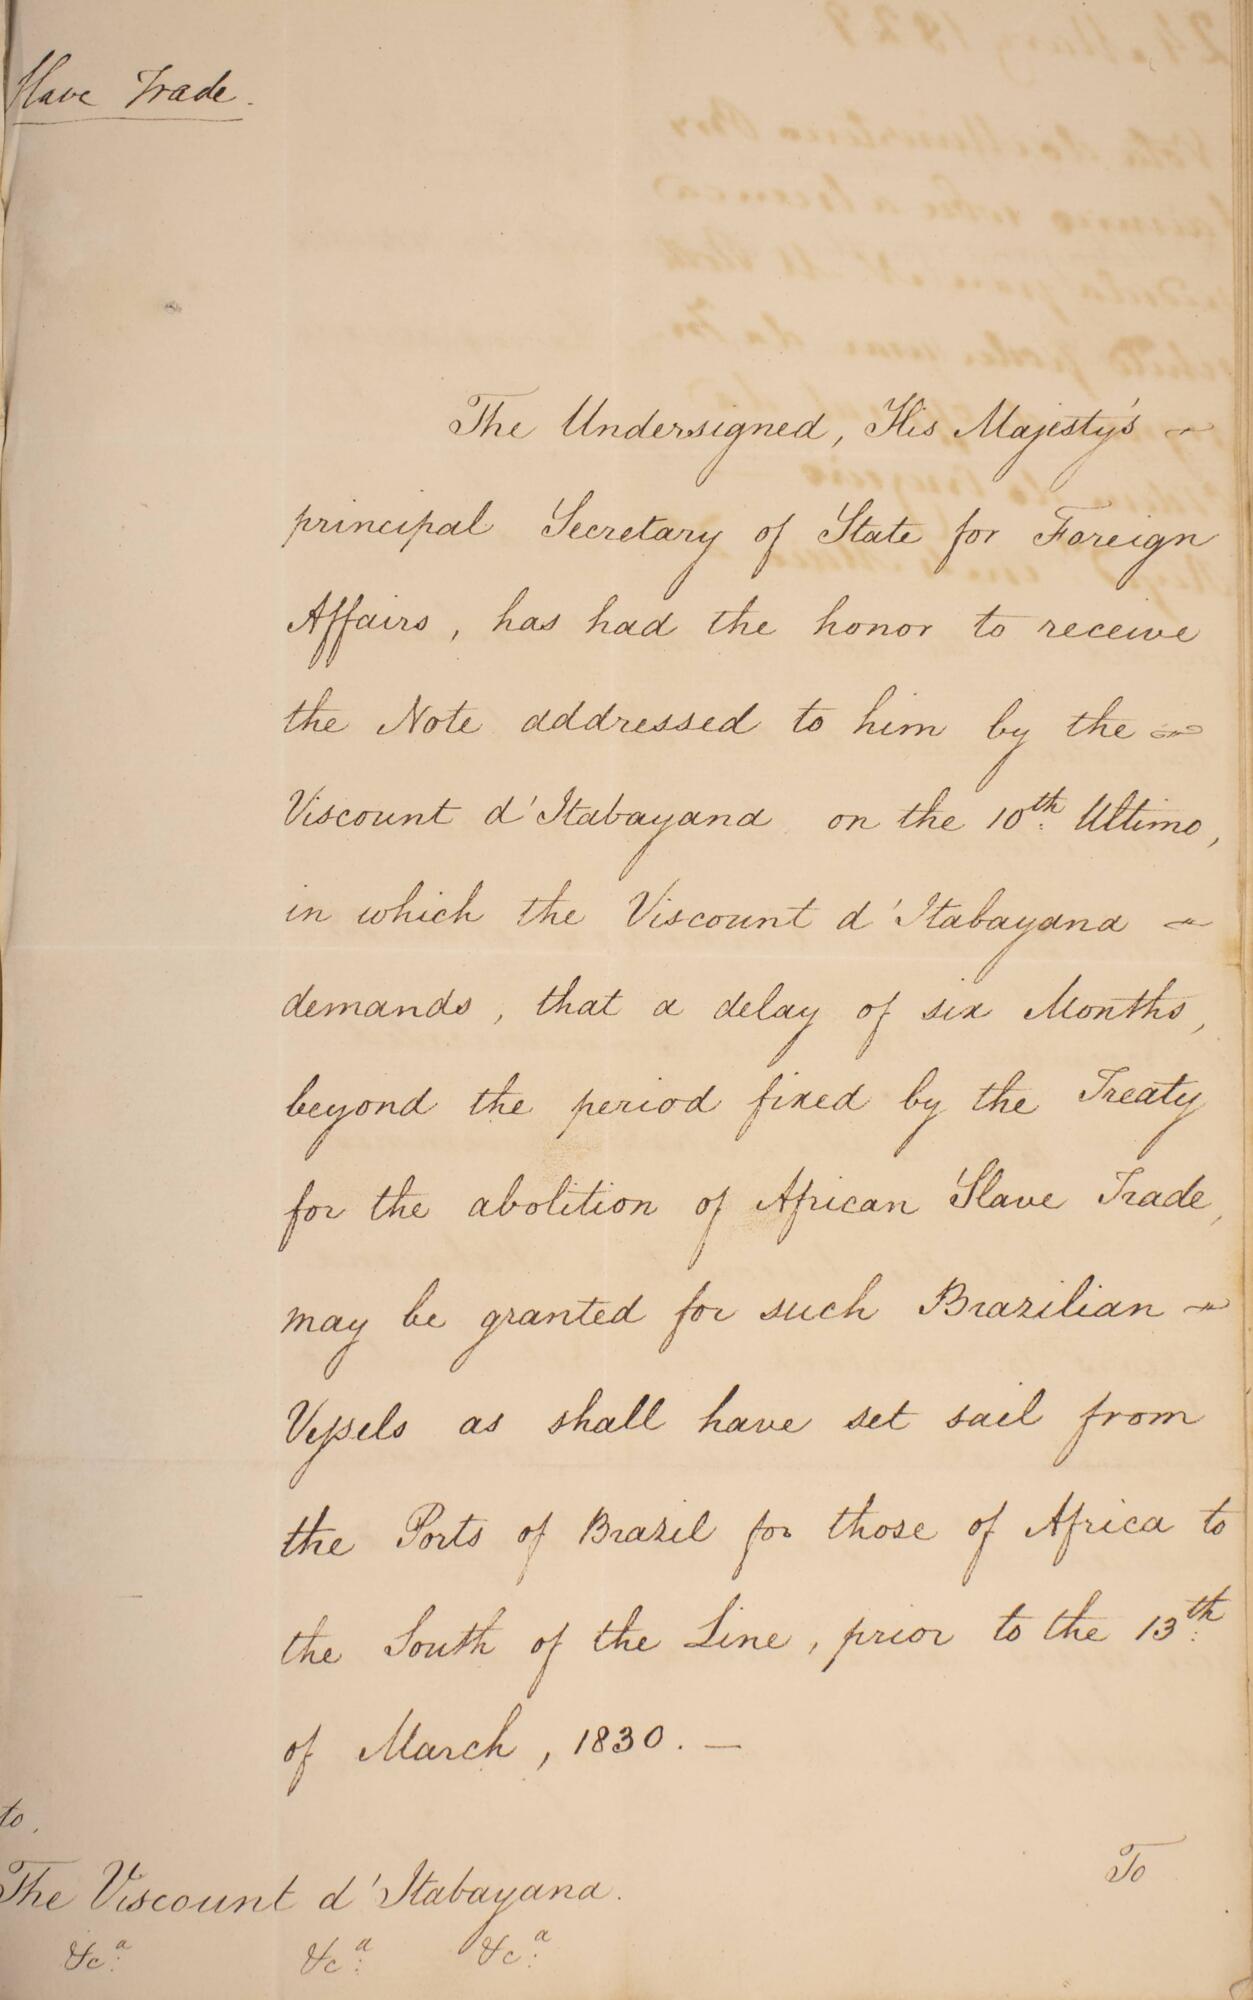 Slave Trade.
The Undersigned, His Majesty's
principal Secretary of State for Foreign
Affairs, has had the honor to receive
the Note adddressed to him by the
Viscount d'Itabayana on the 10th Ultimo,
in which the Viscount d'Itabayana
demands, that a delay of six Months,
beyond the period fixed by the Treaty
for the abolition of African Slave Trade,
may be granted for such Brazilian
Vessels as shall have set sail from
the Ports of Brazil for those of Africa to
the South of the Line, prior to the 13th
of March, 1830. —
to.
The Viscount d'Itabayana.
&ca. &ca. &ca.
To